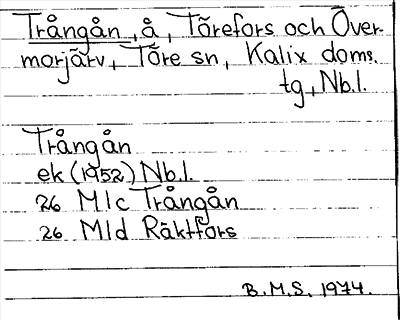 Trångån, å, Törefors och Över-
morjärv, Töre sn, Kalix doms.
tg, Nb.l.
Trångån
ek (1952) Nb.l.
26 Mlc Trångån
26 Mld Räktfors
B.M.S. 1974.